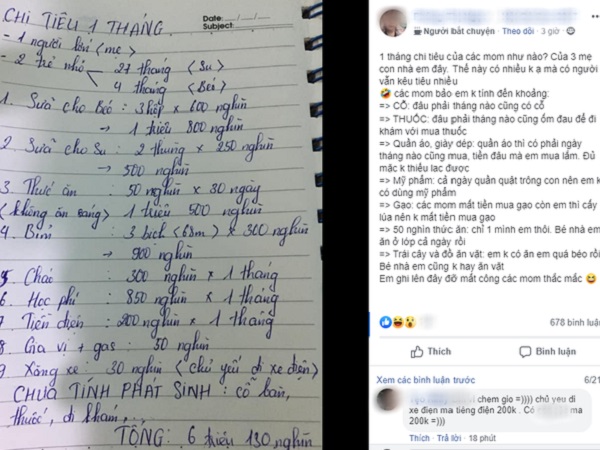 CHI TIÊU 1 THÁNG
Date:
Subject:
- 1 người lớn (mẹ)
- 2 trẻ nhỏ
27 tháng (Su)
4 tháng (Béo)
1. Sữa cho Béo: 3 hộp x 600 nghìn
→ 1 triệu 800 nghìn
2. Sữa cho Su: 2 thùng x 250 nghìn
→ 500 nghìn
3. Thức ăn : 50 nghìn x 30 ngày
(không ăn sáng) 1 triệu 500 nghìn
4. Bỉm : 3 bịch (68m) x 300 nghìn
→ 900 nghìn
5. Cháo : 300 nghìn x 1 tháng
6. Học phí : 850 nghìn x 1 tháng
7. Tiền điện : 200 nghìn x 1 tháng
8. Gia vị + gas : 50 nghìn
9. Xăng xe : 30 nghìn (chủ yếu đi xe điện)
CHƯA TÍNH PHÁT SINH : cỗ bàn,
thuốc, đi khám,...
TỔNG: 6 triệu 130 nghìn
Người bắt chuyện · Theo dõi · 3 giờ
1 tháng chi tiêu của các mom như nào? Của 3 mẹ
con nhà em đây. Thế này có nhiều k ạ mà có người
vẫn kêu tiêu nhiều
🤣 các mom bảo em k tính đến khoảng:
=> CỖ: đâu phải tháng nào cũng có cỗ
=> THUỐC: đâu phải tháng nào cũng ốm đau để đi
khám với mua thuốc
=> Quần áo, giày dép: quần áo thì có phải ngày
tháng nào cũng mua, tiền đâu mà em mua lắm. Đủ
mặc k thiếu lạc được
=> Mỹ phẩm: cả ngày quần quật trông con nên em k
có dùng mỹ phẩm
=> Gạo: các mom mất tiền mua gạo còn em thì cấy
lúa nên k mất tiền mua gạo
=> 50 nghìn thức ăn: chỉ 1 mình em thôi. Bé nhà em
ăn ở lớp cả ngày rồi
=> Trái cây và đồ ăn vặt: em k có ăn em quá béo rồi
Bé nhà em cũng k hay ăn vặt
Em ghi lên đây đỡ mất công các mom thắc mắc 😅
678 bình luận
Thích
Bình luận
Xem các bình luận trước
6/21
chem gio =)))) chủ yeu di
xe điện ma tiếng điện 200k . Có ma
200k =)))
Thích · Trả lời · 18 phút